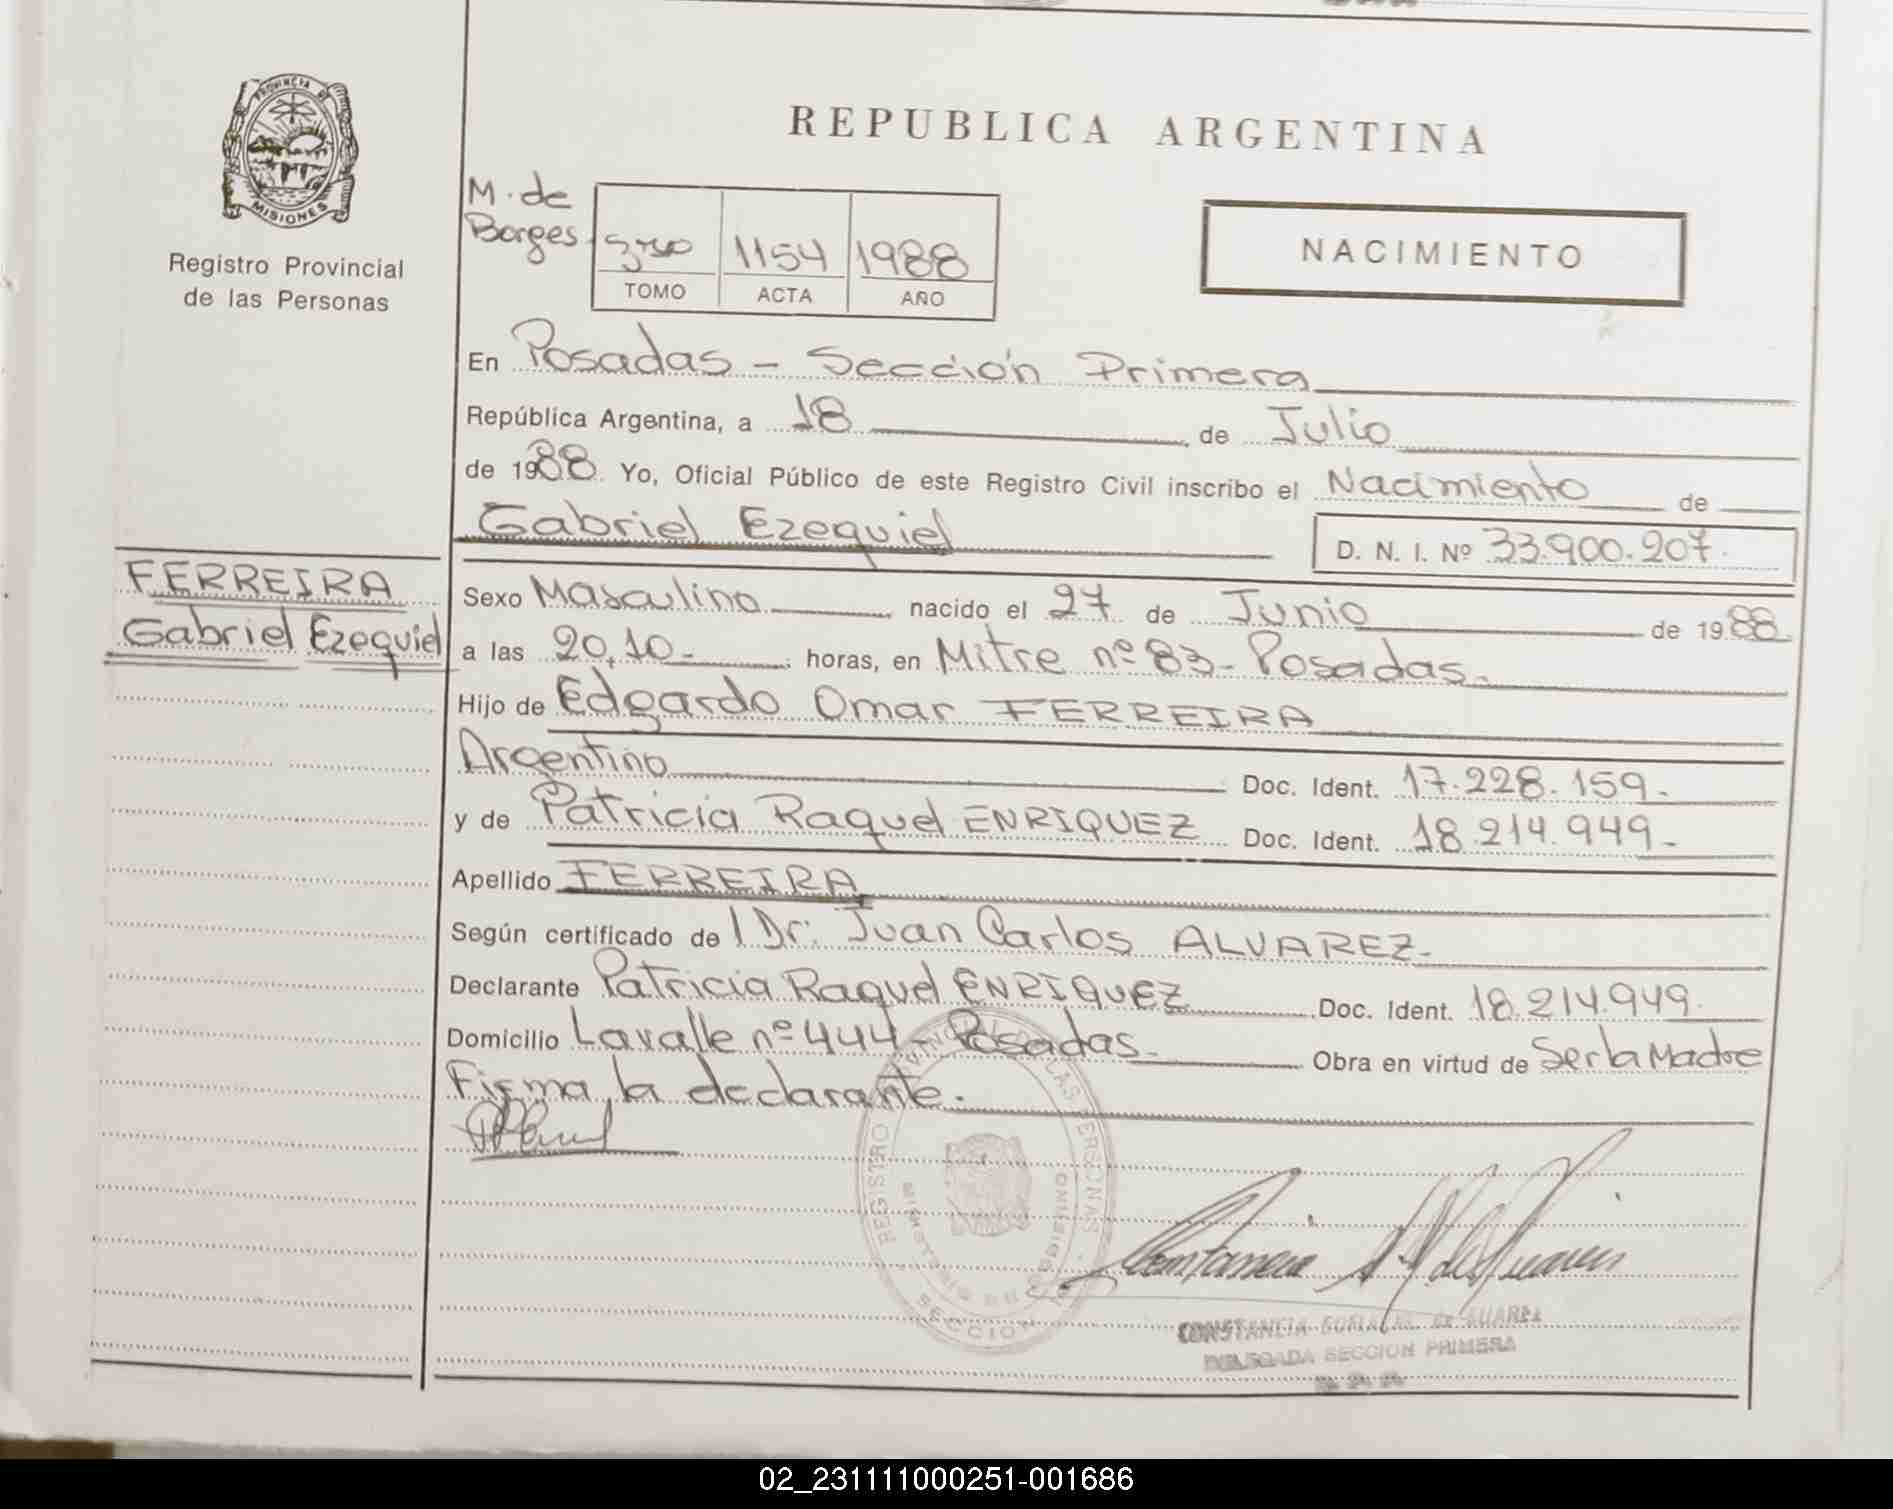 PROVINCIA DE
MISIONES
Registro Provincial
de las Personas
REPUBLICA ARGENTINA
M. de
Borges
3ro 1154 1988
TOMO ACTA AÑO
NACIMIENTO
En Posadas - Sección Primera
República Argentina, a 18 de Julio
de 1988. Yo, Oficial Público de este Registro Civil inscribo el Nacimiento de
Gabriel Ezequiel D. N. I. Nº 33.900.207.
FERREIRA
Gabriel Ezequiel
Sexo Masculino nacido el 27 de Junio de 1988
a las 20,10- horas, en Mitre nº 83- Posadas.-
Hijo de Edgardo Omar FERREIRA
Argentino Doc. Ident. 17.228.159.-
y de Patricia Raquel ENRIQUEZ Doc. Ident. 18.214.949.-
Apellido FERREIRA
Según certificado de / Dr: Juan Carlos ALVAREZ.-
Declarante Patricia Raquel ENRIQUEZ Doc. Ident. 18.214.949.
Domicilio Lavalle nº 444- Posadas.- Obra en virtud de Ser la Madre
Firma la declarante.-
REGISTRO PROVINCIAL DE LAS PERSONAS
MINISTERIO DE GOBIERNO
SECCION
CONSTANCIA de SUAREZ
DELEGADA SECCION PRIMERA
02_231111000251-001686